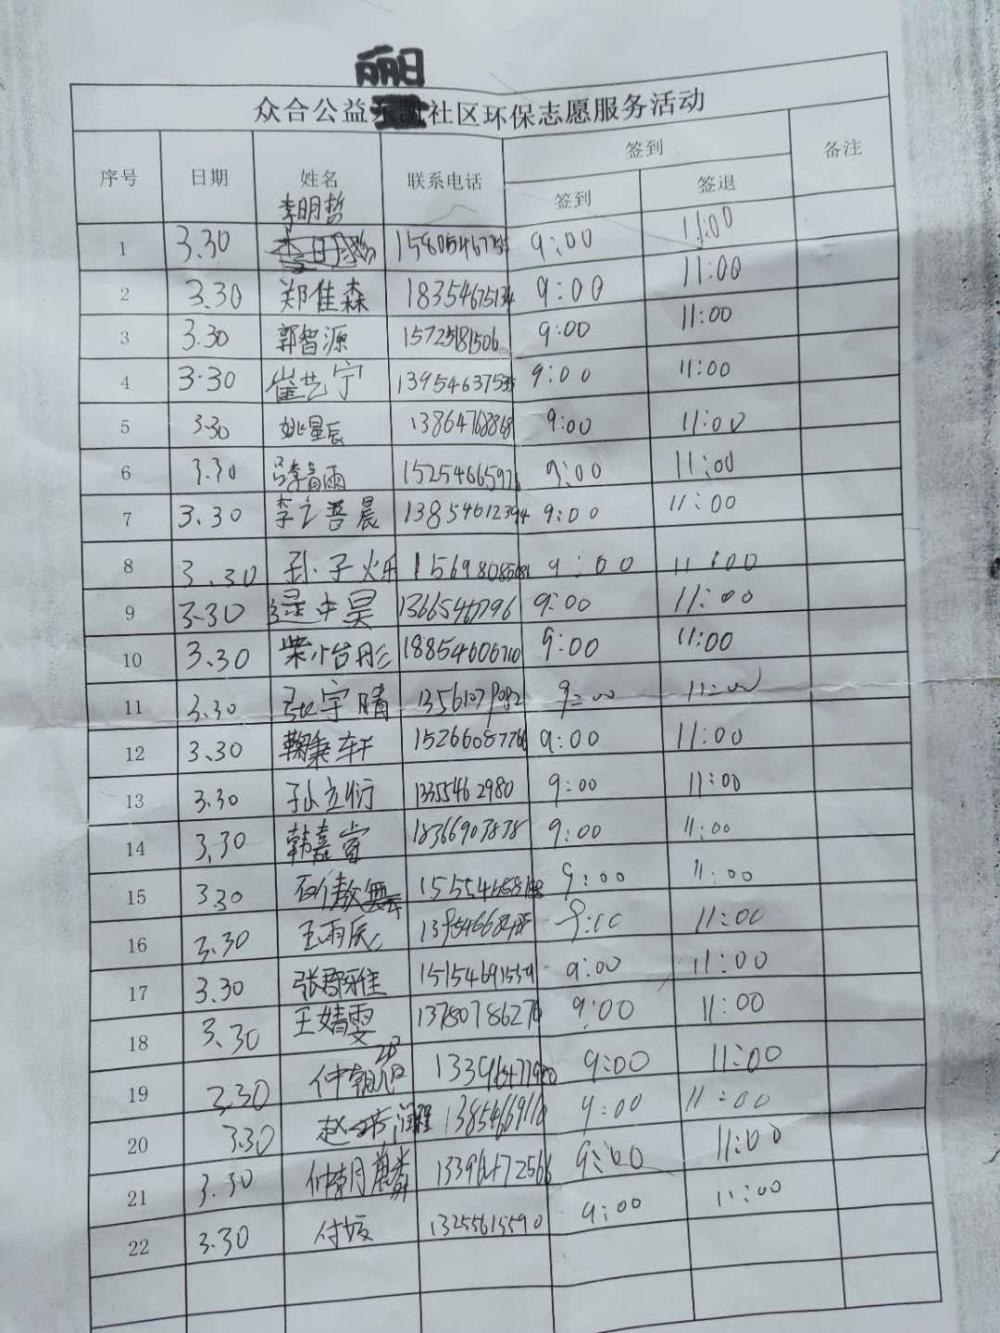 丽日
众合公益东凯社区环保志愿服务活动
序号 日期 姓名 联系电话 签到 备注
签到 签退
李明哲
1 3.30 9:00 11:00
2 3.30 郑佳森 18354675134 9:00 11:00
3 3.30 郭智源 15725181506 9:00 11:00
4 3.30 崔艺宁 9:00 11:00
5 3.30 姚星辰 13864768868 9:00 11:00
6 3.30 9:00 11:00
7 3.30 李之善晨 9:00 11:00
8 3.30 孙子烁 9:00 11:00
9 3.30 中昊 13665467796 9:00 11:00
10 3.30 柴怡彤 18854606710 9:00 11:00
11 3.30 张宇晴 13561079082 9:00 11:00
12 3.30 鞠秉轩 15266087766 9:00 11:00
13 3.30 孙立衍 1335462980 9:00 11:00
14 3.30 韩嘉 18366907878 9:00 11:00
15 3.30 9:00 11:00
16 3.30 王雨辰 9:00 11:00
17 3.30 张郡雅 15154691559 9:00 11:00
18 3.30 王婧雯 13780786276 9:00 11:00
19 3.30 仲朝 9:00 11:00
20 3.30 赵 程 9:00 11:00
21 3.30 9:00 11:00
22 3.30 付媛 13255615590 9:00 11:00